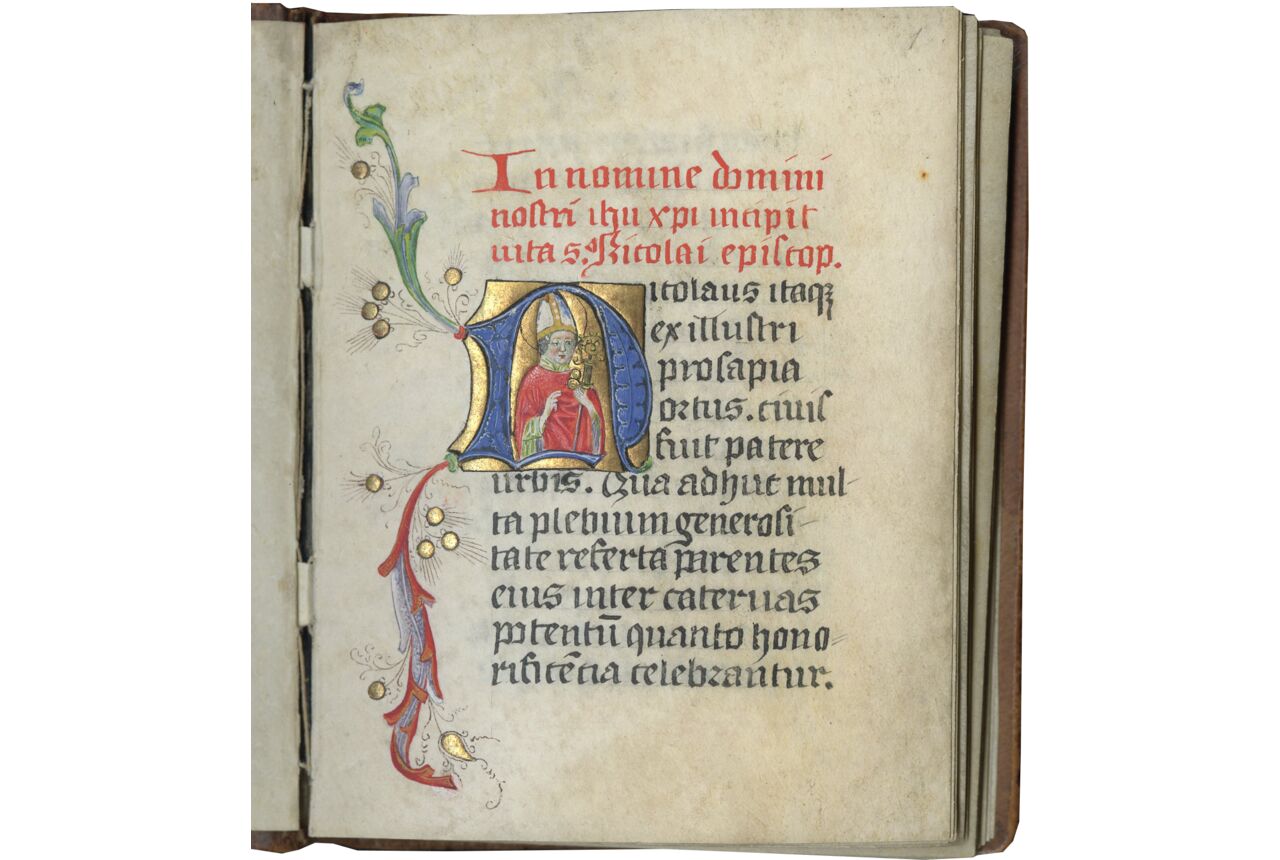 1
In nomine domini
nostri ihu xpi incipit
uita s. Nicolai episcop.
Nicolaus itaqꝫ
ex illustri
prosapia
ortus. ciuis
fuit patere
urbis. Qua adhuc mul⸗
ta plebium generosi⸗
tate referta parentes
eius inter cateruas
potentū quanto hono⸗
rificēcia celebrantur.